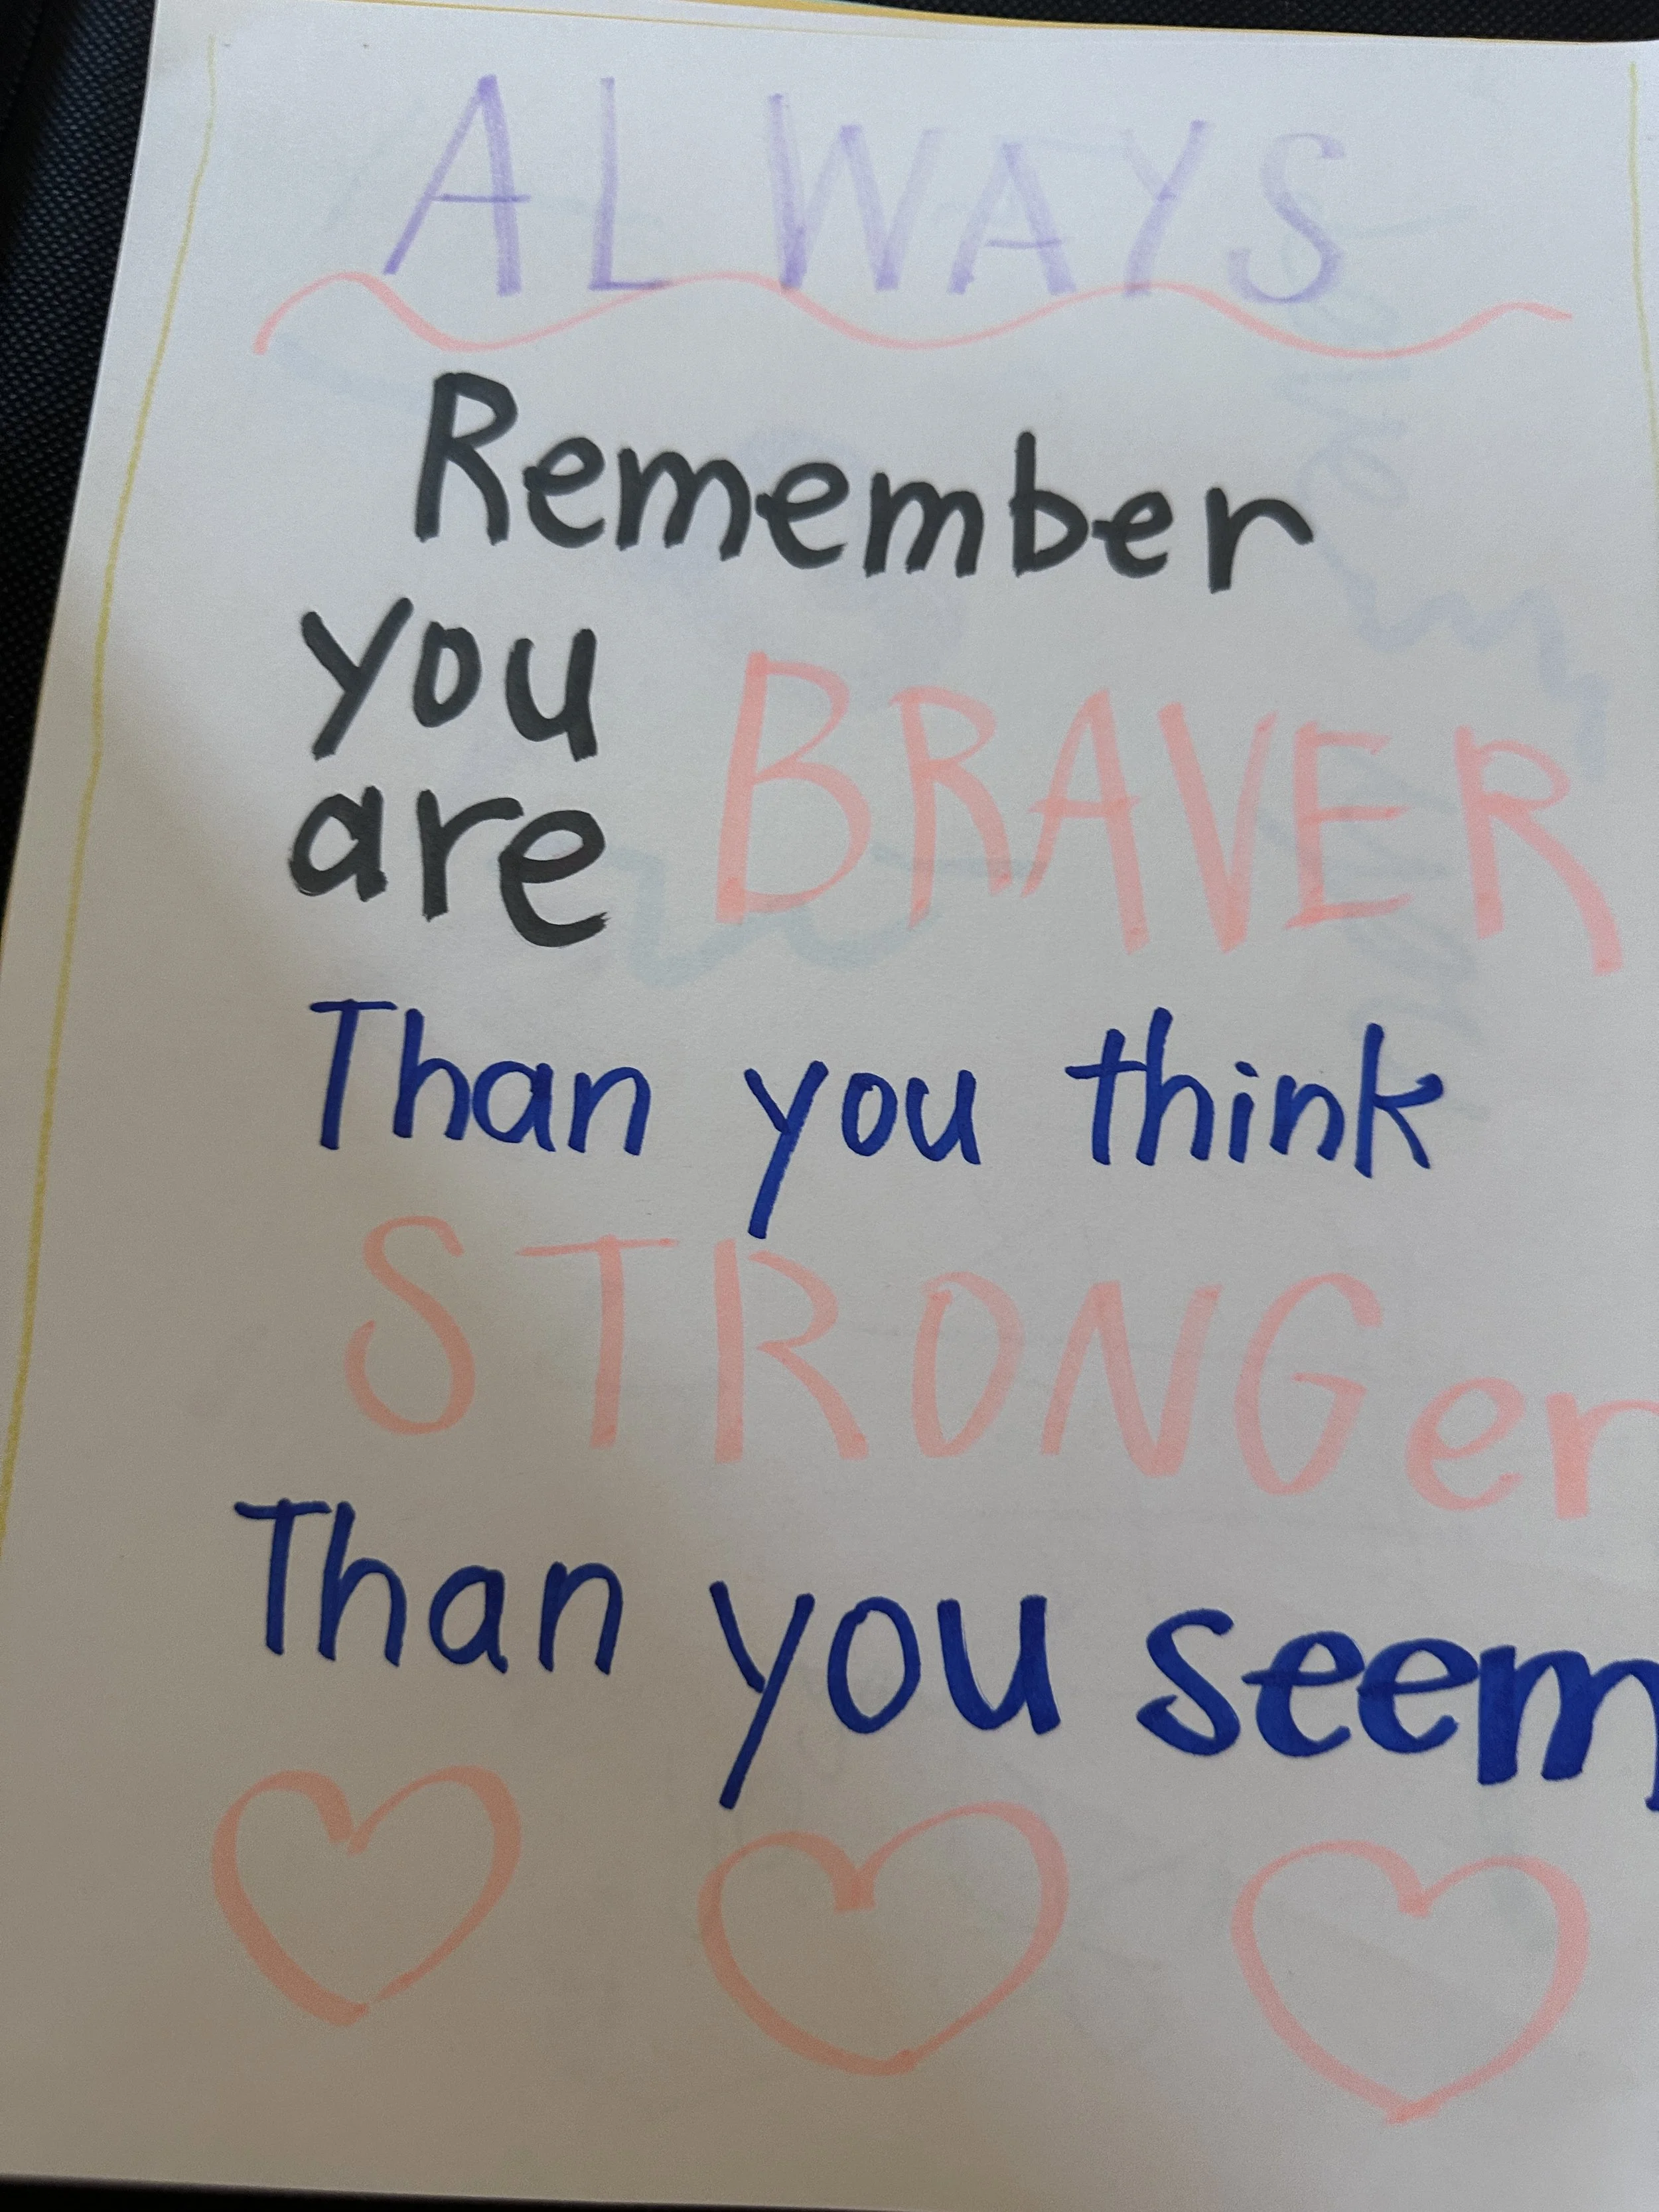 ALWAYS
Remember
you
are BRAVER
Than you think
STRONGer
Than you seem